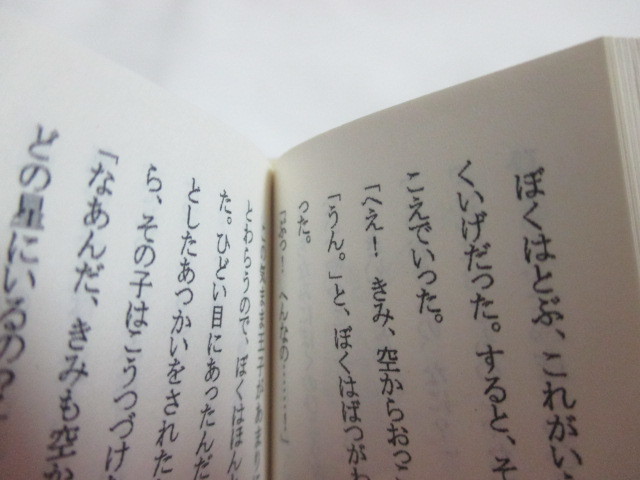 ぼくはとぶ、これがい
くいげだった。すると、そ
こえでいった。
「へえ！ きみ、空からおっ
「うん。」と、ぼくはばつがわ
った。
へんなの……！」
とわらうので、ぼくはほん
た。ひどい目にあったんだ
としたあつかいをされた
ら、その子はこうつづけ
「なあんだ、きみも空か
どの星にいるの？